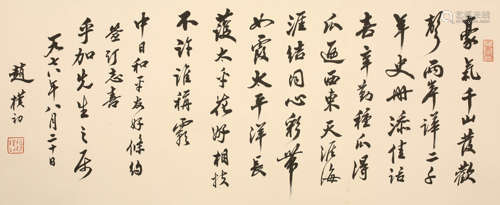 豪氣千山發歡
聲兩岸譁二千
年史冊添佳話
喜辛勤種瓜得
瓜遍西東天涯海
涯結同心彩帶
如霞太平洋長
護太平花好相扶
不許誰稱霸
中日和平友好條約
簽訂志喜
乎加先生之屬
一九七八年八月二十日
趙樸初